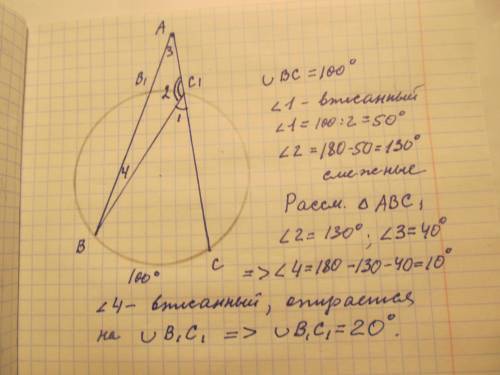 A
3
B₁
C₁
2
1
4
B
C
100°
∪BC = 100°
∠1 - вписанный
∠1 = 100 : 2 = 50°
∠2 = 180 - 50 = 130°
смежные
Рассм. △ABC₁
∠2 = 130° ; ∠3 = 40°
=> ∠4 = 180 - 130 - 40 = 10°
∠4 - вписанный, опирается
на ∪B₁C₁ => ∪B₁C₁ = 20°.